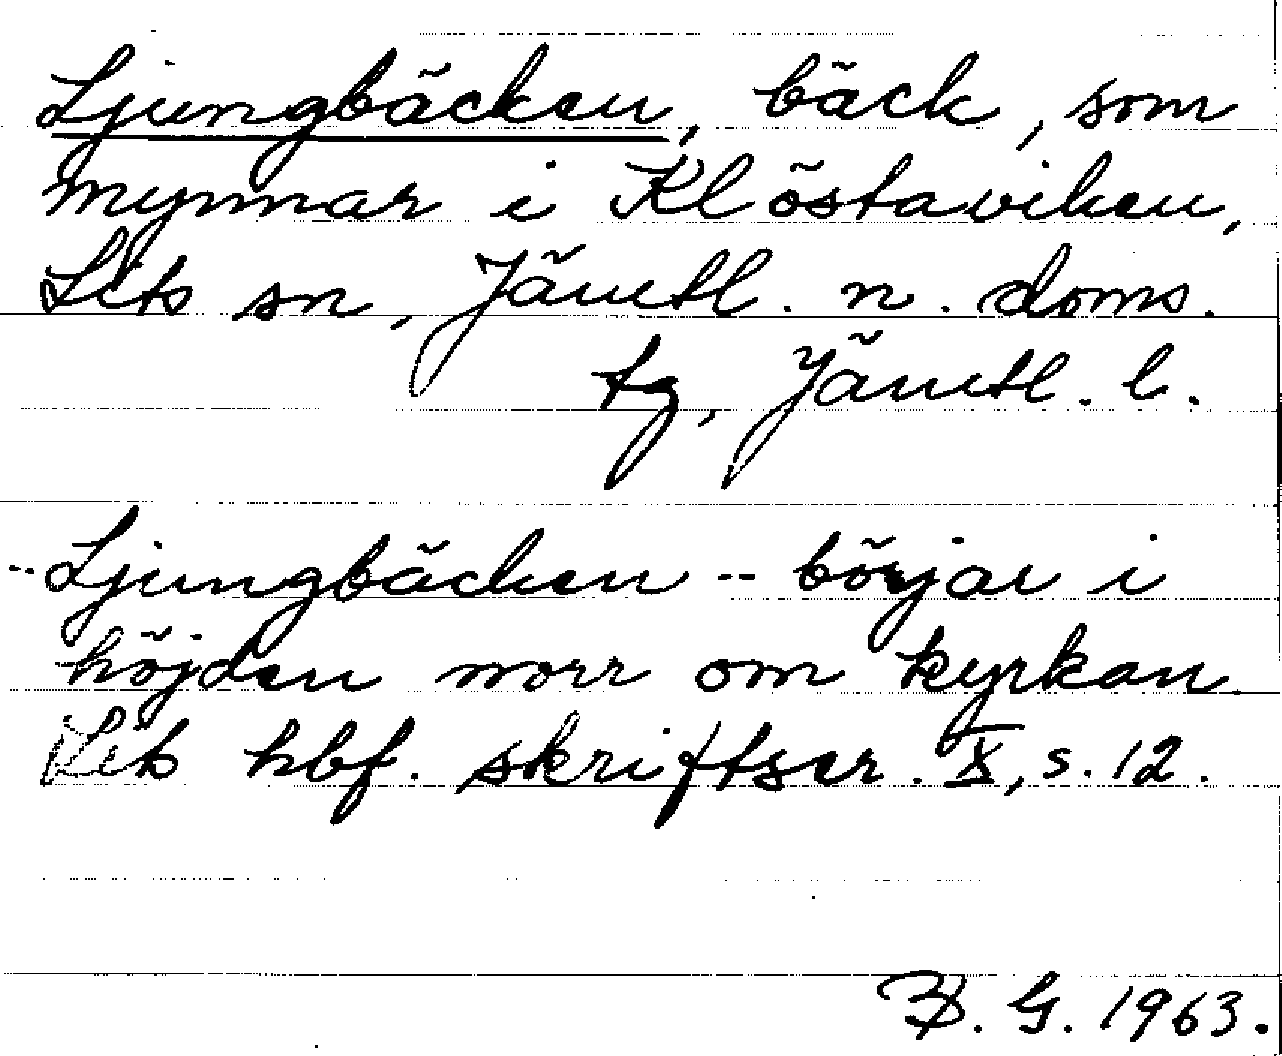 Ljungbäcken, bäck, som
mynnar i Klöstaviken,
Lits sn, Jämtl. n. doms.
tg, Jämtl. l.
--Ljungbäcken -- börjar i
höjden norr om kyrkan.
Lits hbf. skriftser. X, s. 12.
B. G. 1963.